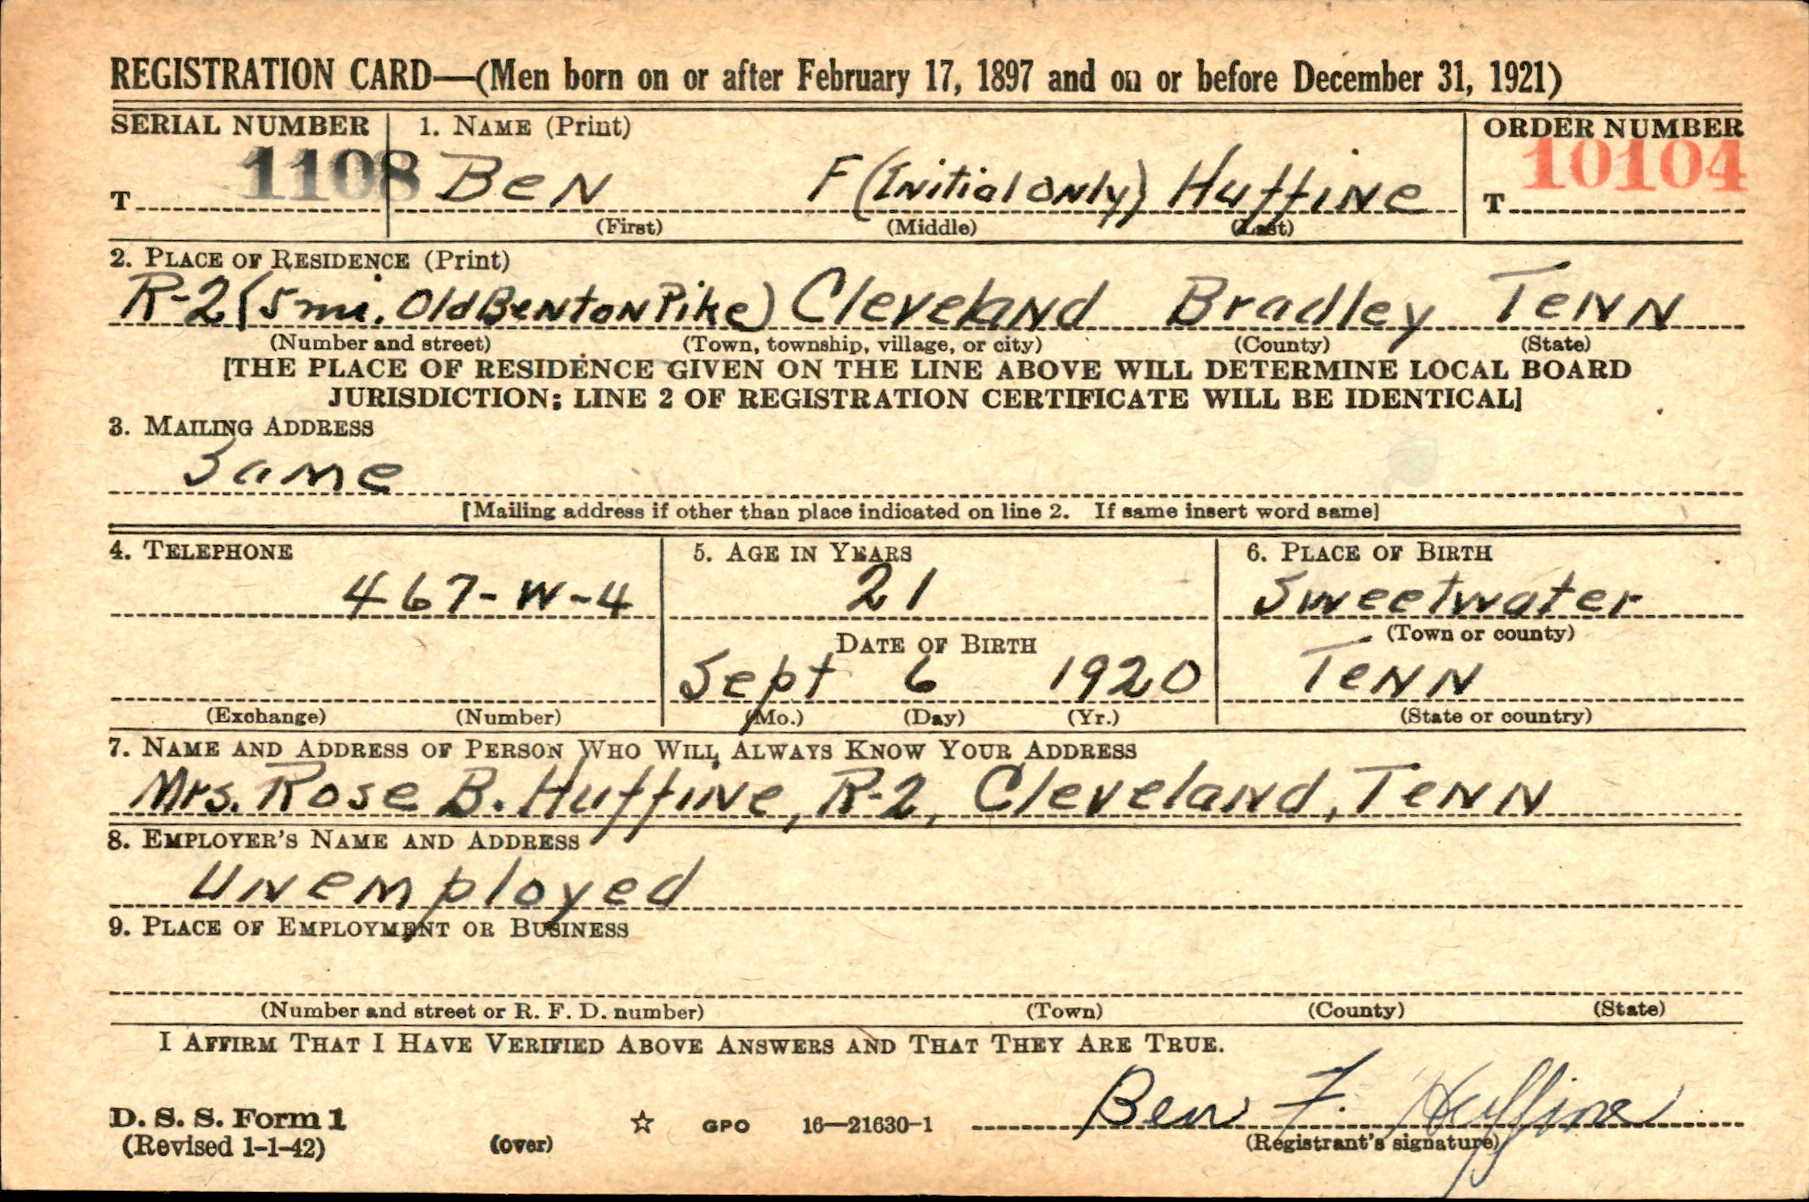 REGISTRATION CARD—(Men born on or after February 17, 1897 and on or before December 31, 1921)
SERIAL NUMBER 1. NAME (Print) ORDER NUMBER
T 1108 Ben F (Initial only) Huffine T 10104
(First) (Middle) (Last)
2. PLACE OF RESIDENCE (Print)
R-2 (5 mi. Old Benton Pike) Cleveland Bradley Tenn
(Number and street) (Town, township, village, or city) (County) (State)
[THE PLACE OF RESIDENCE GIVEN ON THE LINE ABOVE WILL DETERMINE LOCAL BOARD
JURISDICTION; LINE 2 OF REGISTRATION CERTIFICATE WILL BE IDENTICAL]
3. MAILING ADDRESS
Same
[Mailing address if other than place indicated on line 2. If same insert word same]
4. TELEPHONE 5. AGE IN YEARS 6. PLACE OF BIRTH
467-W-4 21 Sweetwater
DATE OF BIRTH (Town or county)
Sept 6 1920 Tenn
(Exchange) (Number) (Mo.) (Day) (Yr.) (State or country)
7. NAME AND ADDRESS OF PERSON WHO WILL ALWAYS KNOW YOUR ADDRESS
Mrs. Rose B. Huffine, R-2, Cleveland, Tenn
8. EMPLOYER'S NAME AND ADDRESS
Unemployed
9. PLACE OF EMPLOYMENT OR BUSINESS
(Number and street or R. F. D. number) (Town) (County) (State)
I AFFIRM THAT I HAVE VERIFIED ABOVE ANSWERS AND THAT THEY ARE TRUE.
Ben F. Huffine
D. S. S. Form 1 ☆ GPO 16—21630-1
(Revised 1-1-42) (over) (Registrant's signature)